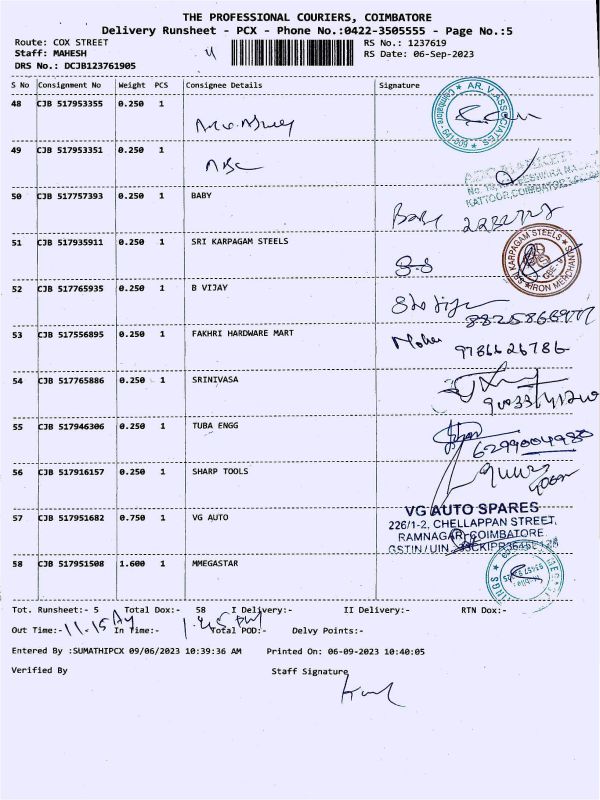 THE PROFESSIONAL COURIERS, COIMBATORE
Delivery Runsheet - PCX - Phone No.:0422-3505555 - Page No.:5
Route: COX STREET RS No.: 1237619
Staff: MAHESH RS Date: 06-Sep-2023
DRS No.: DCJB123761905
S No Consignment No Weight PCS Consignee Details Signature
48 CJB 517953355 0.250 1
AR. V. ASSOCIATES
49 CJB 517953351 0.250 1
50 CJB 517757393 0.250 1 BABY
KATTOOR, COIMBATORE
Baby
51 CJB 517935911 0.250 1 SRI KARPAGAM STEELS
KARPAGAM STEELS
IRON MERCHANTS
52 CJB 517765935 0.250 1 B VIJAY
53 CJB 517556895 0.250 1 FAKHRI HARDWARE MART
9786626786
54 CJB 517765886 0.250 1 SRINIVASA
55 CJB 517946306 0.250 1 TUBA ENGG
6299004980
56 CJB 517916157 0.250 1 SHARP TOOLS
57 CJB 517951682 0.750 1 VG AUTO
VG AUTO SPARES
226/1-2, CHELLAPPAN STREET,
RAMNAGAR, COIMBATORE.
GSTIN/UIN
58 CJB 517951508 1.600 1 MMEGASTAR
Tot. Runsheet:- 5 Total Dox:- 58 I Delivery:- II Delivery:- RTN Dox:-
Out Time:- 11.15 AM In Time:- 1.45 PM Total POD:- Delvy Points:-
Entered By :SUMATHIPCX 09/06/2023 10:39:36 AM Printed On: 06-09-2023 10:40:05
Verified By Staff Signature